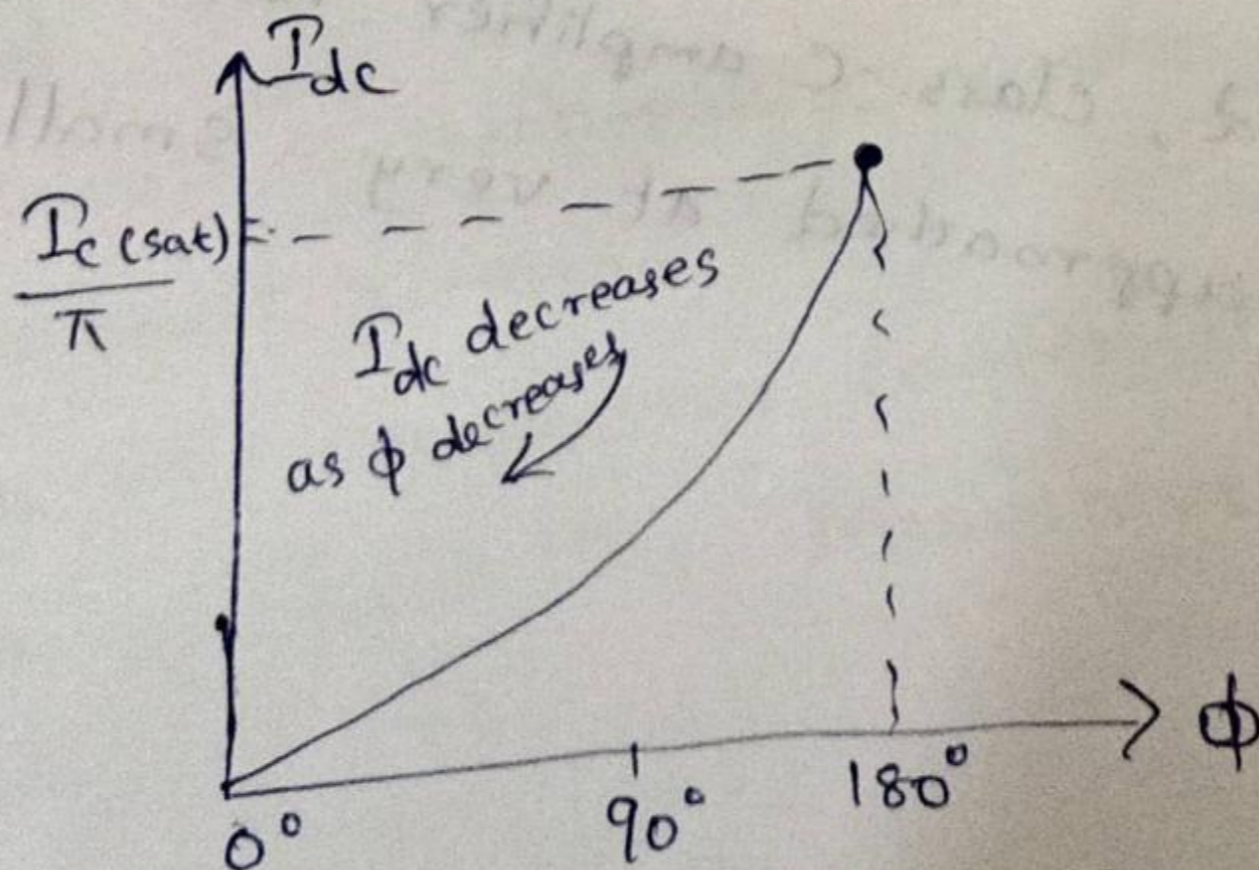 I_dc
I_c (sat)
π
I_dc decreases
as ϕ decreases
0° 90° 180° ϕ